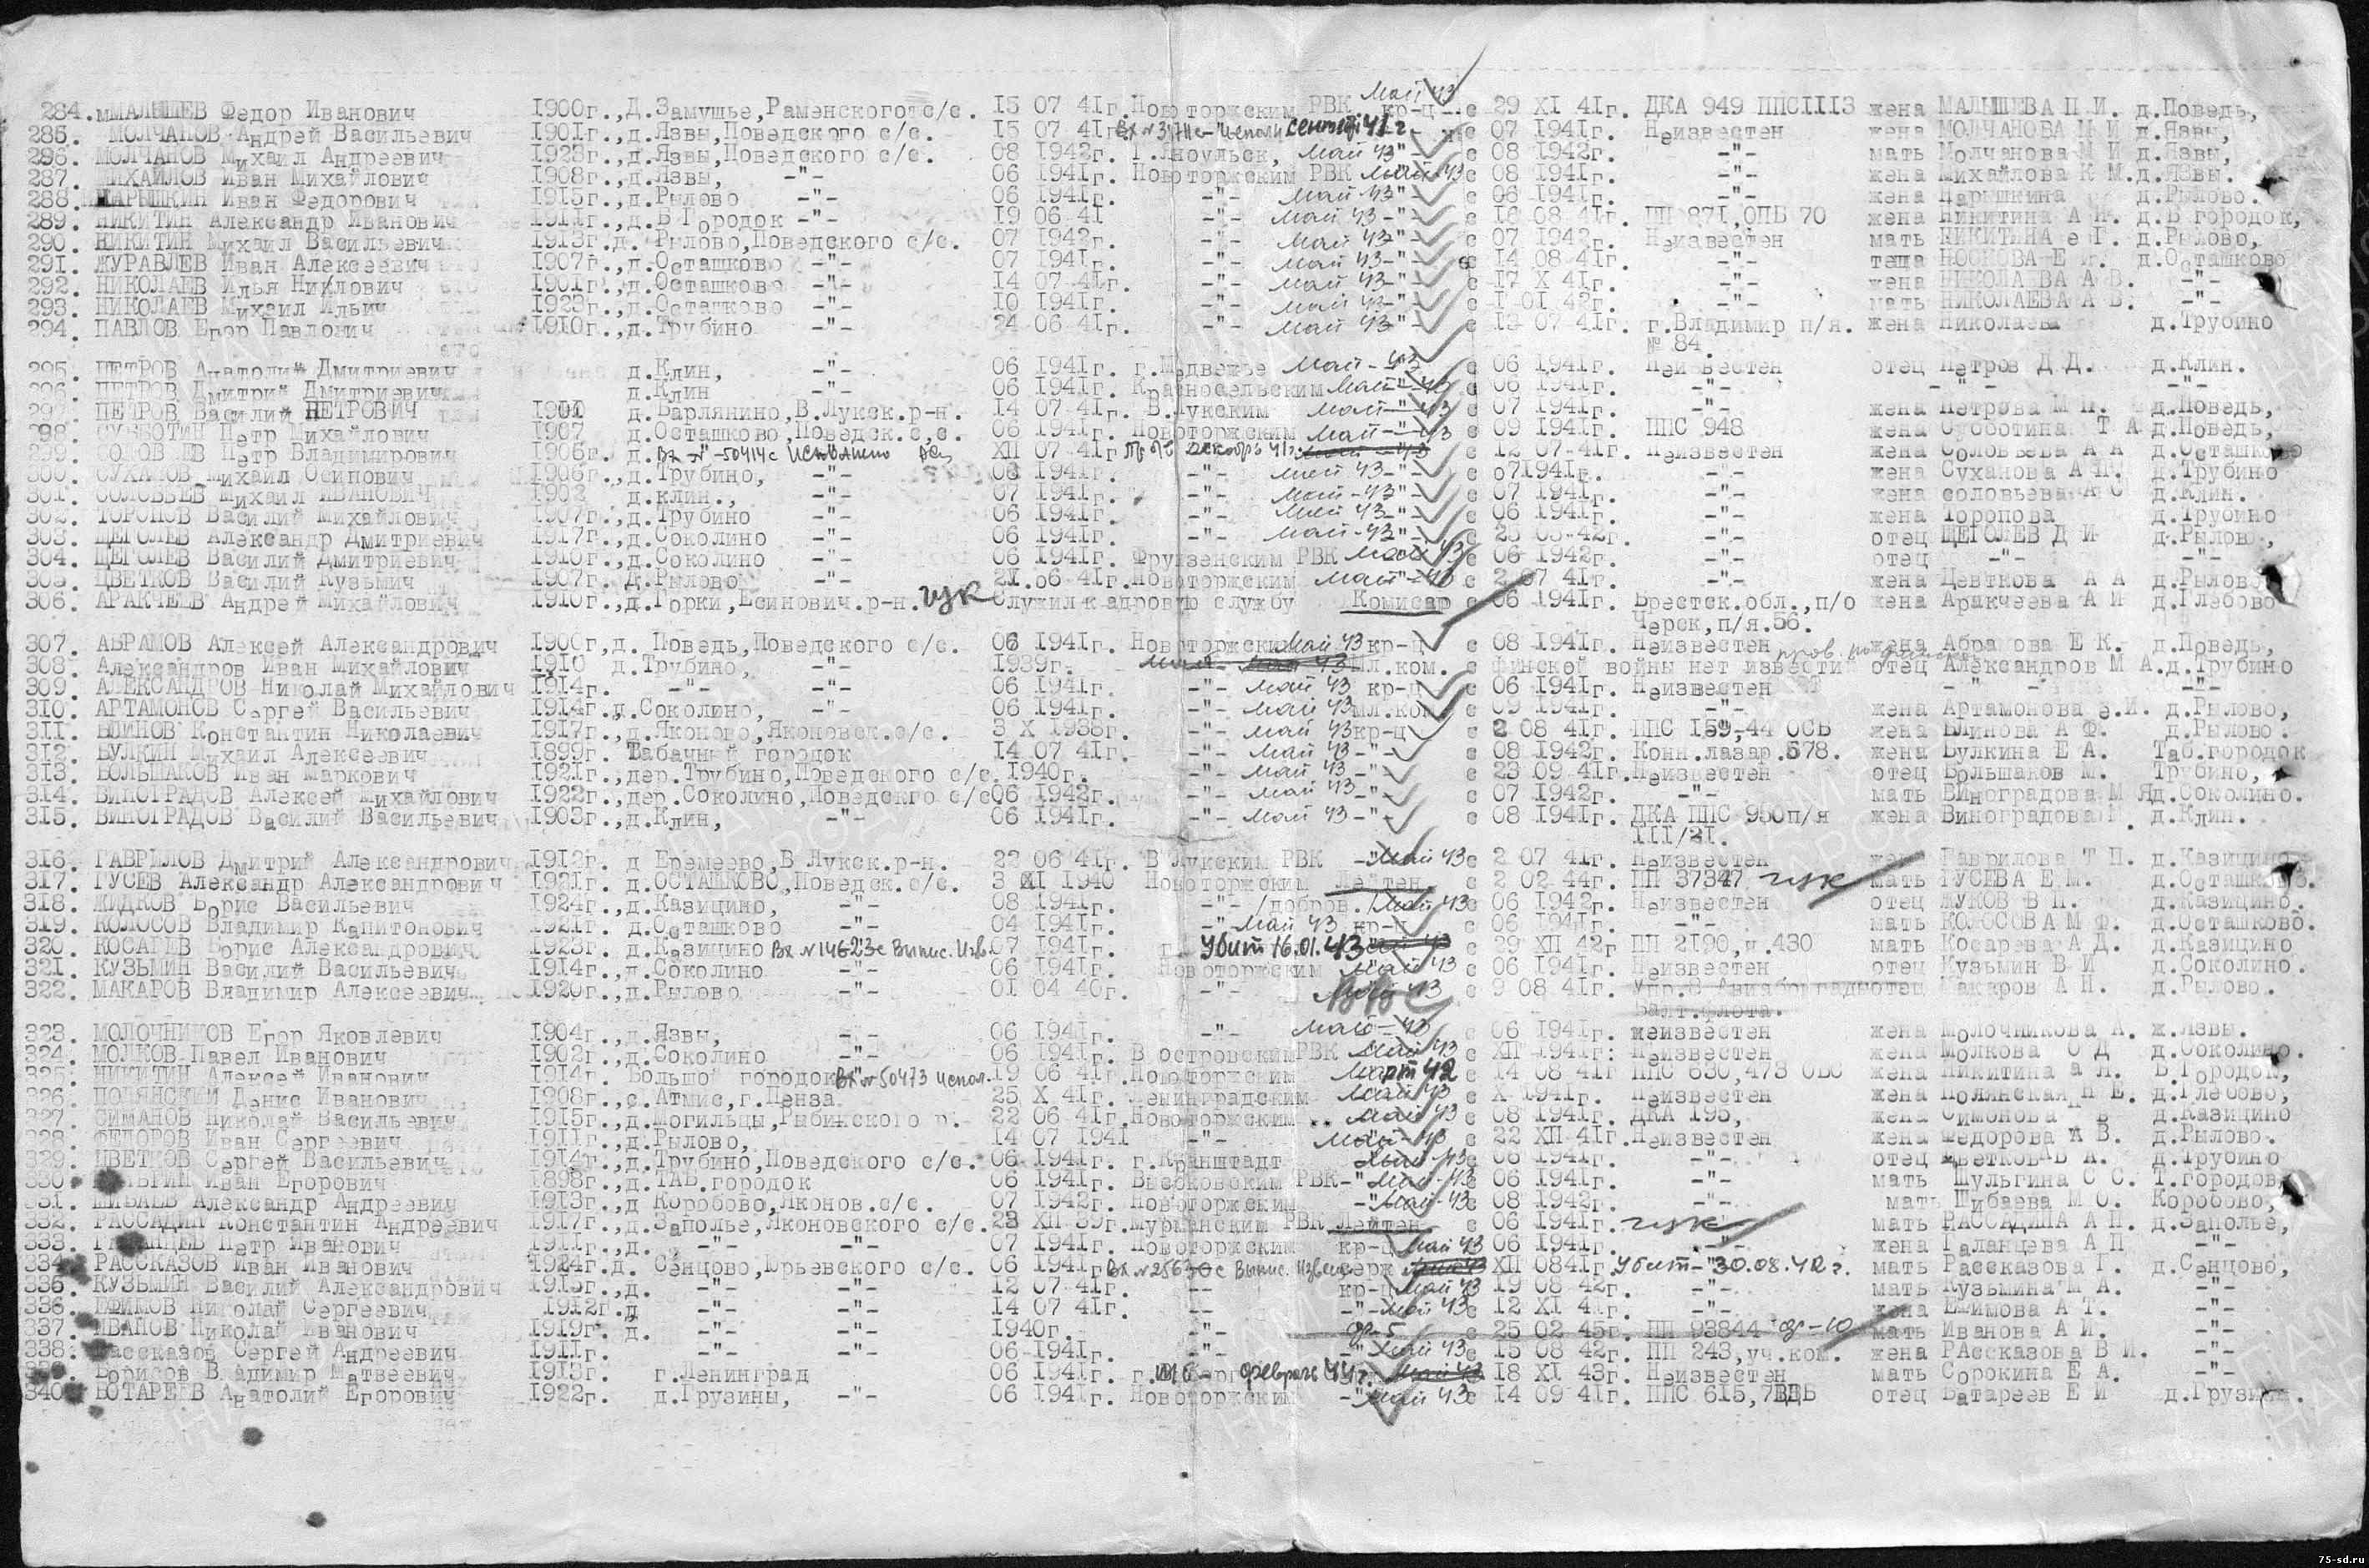 284. мМАЛЫШЕВ Федор Иванович 1900г., Д.Замушье,Раменского с/с. 15 07 41г. Новоторжским РВК май 43 кр-ц с 29 XI 41г. ДКА 949 ППС1113 жена МАЛЫШЕВА П.И. д.Поведь,
285. МОЛЧАНОВ Андрей Васильевич 1901г.,д.Язвы,Поведского с/с. 15 07 41г. сентябр 41г с 07 1941г. Неизвестен жена МОЛЧАНОВА д.Язвы,
296. МОЛЧАНОВ Михаил Андреевич 1923г.,д.Язвы,Поведского с/с. 08 1942г. май 43 -"- с 08 1942г. -"- мать Молчанова М И д.Язвы,
287. МИХАЙЛОВ Иван Михайлович 1908г.,д.Язвы, -"- 06 1941г. Новоторжским РВК май 43 с 08 1941г. -"- жена Михайлова К М.д.Язвы.
288. НАРЫШКИН Иван Федорович 1915г.,д.Рылово -"- 06 1941г. -"- май 43 -"- с 06 1941г. -"- жена Нарышкина д.Рылово.
289. НИКИТИН Александр Иванович 1911г.,д.Б Городок -"- 19 06 41 -"- май 43 -"- с 16 08 41г. ПП 871,ОПБ 70 жена Никитина А И. д.Б городок,
290. НИКИТИН Михаил Васильевич 1913г.д. Рылово,Поведского с/с. 07 1942г. -"- май 43 -"- с 07 1942г. Неизвестен мать НИКИТИНА е Г. д.Рылово,
291. ЖУРАВЛЕВ Иван Алексеевич 1907г.,д.Осташково -"- 07 1941г. -"- май 43 -"- с 14 08 41г. -"- теща НОСКОВА Е д.Осташково
292. НИКОЛАЕВ Илья Никлович 1901г.,д.Осташково -"- 14 07 41г. -"- май 43 -"- с 17 X 41г. -"- жена НИКОЛАЕВА А В. -"-
293. НИКОЛАЕВ Михаил Ильич 1923г.,д.Осташково -"- 10 1941г. -"- май 43 -"- с 1 01 42г. -"- мать НИКОЛАЕВА А В. -"-
294. ПАВЛОВ Егор Павлович 1910г.,д.Трубино -"- 24 06 41г. -"- май 43 -"- с 13 07 41г. г.Владимир п/я. жена Николаева д.Трубино
№ 84.
295. ПЕТРОВ Анатолий Дмитриевич д.Клин, -"- 06 1941г. г.Медвежье май 43 с 06 1941г. Неизвестен отец Петров Д Д. д.Клин.
296. ПЕТРОВ Дмитрий Дмитриевич д.Клин -"- 06 1941г. Красносельским май 43 с 06 1941г. -"- -"- -"-
297. ПЕТРОВ Василий ПЕТРОВИЧ 1901 д.Барлянино,В.Лукск.р-н. 14 07 41г. В.Лукским май 43 с 07 1941г. -"- жена Петрова М П. д.Поведь,
298. СУББОТИН Петр Михайлович 1907 д.Осташково,Поведск.с,с. 06 1941г. Новоторжским май 43 с 09 1941г. ППС 948 жена Субботина Т А д.Поведь,
299. СОЛОВЬЕВ Петр Владимирович 1906г., д. Вх №-50414с XII 07 41г Пр б/в декабрь 41г. с 12 07 41г. Неизвестен жена Соловьева А А д.Осташково
300. СУХАНОВ Михаил Осипович 1906г.,д.Трубино, -"- 06 1941г. -"- май 43 -"- с о71941г. -"- жена Суханова А П. д.Трубино
301. СОЛОВЬЕВ Михаил ИВАНОВИЧ 1902 д.клин., -"- 07 1941г. -"- май 43 -"- с 07 1941г. -"- жена соловьева А С д.Клин.
302. ТОРОПОВ Василий Михайлович 1907г.,д.Трубино -"- 06 1941г. -"- май 43 -"- с 06 1941г. -"- жена Торопова д.Трубино
303. ЩЕГОЛЕВ Александр Дмитриевич 1917г.,д.Соколино -"- 06 1941г. -"- май 43 -"- с 23 03 42г. -"- отец ЩЕГОЛЕВ Д И д.Рылово,
304. ЩЕГОЛЕВ Василий Дмитриевич 1910г.,д.Соколино -"- 06 1941г. Фрунзенским РВК май 43 с 06 1942г. -"- отец -"- -"-
305. ЦВЕТКОВ Василий Кузьмич 1907г. д.Рылово -"- 21.о6 41г.Новоторжским май 43 с 2 07 41г. -"- жена Цевткова А А д.Рылово
306. АРАКЧЕЕВ Андрей Михайлович 1910г.,д.Горки,Есинович.р-н. гук Служил кадровую службу Комисар с 06 1941г. Брестск.обл.,п/о жена Аракчеева А И д.Глебово
Черск,п/я.56.
307. АБРАМОВ Алексей Александрович 1900г,д. Поведь,Поведского с/с. 06 1941г. Новоторжским май 43 кр-ц с 08 1941г. Неизвестен жена Абрамова Е К. д.Поведь,
308. Александров Иван Михайлович 1910 д.Трубино, -"- 1939г. мл.ком. с финской войны нет извести отец Александров М А.д.Трубино
309. АЛЕКСАНДРОВ Николай Михайлович 1914г. -"- -"- 06 1941г. -"- май 43 кр-ц с 06 1941г. Неизвестен -"- -"-
310. АРТАМОНОВ Сергей Васильевич 1914г.д.Соколино, -"- 06 1941г. -"- май 43 мл.ком. с 09 1941г. -"- жена Артамонова е.И. д.Рылово,
311. БЛИНОВ Константин Николаевич 1917г.,д.Яконово,Яконовск.с/с. 3 X 1938г. -"- май 43 кр-ц с 2 08 41г. ППС 159,44 ОСБ жена Блинова А Ф. д.Рылово.
312. БУЛКИН Михаил Алексеевич 1899г. Табачный городок 14 07 41г. -"- май 43 -"- с 08 1942г. Конн.лазар.578. жена Булкина Е А. Таб.городок
313. БОЛЬШАКОВ Иван Маркович 1921г.,дер.Трубино,Поведского с/с.1940г. -"- май 43 -"- с 23 09 41г.Неизвестен отец Большаков М. Трубино,
314. ВИНОГРАДОВ Алексей Михайлович 1922г.,дер.Соколино,Поведского с/с.06 1942г. -"- май 43 -"- с 07 1942г. -"- мать ВИноградова М Яд.Соколино.
315. ВИНОГРАДОВ Василий Васильевич 1903г.,д.Клин, -"- 06 1941г. -"- май 43 -"- с 08 1941г. ДКА ППС 950п/я жена Виноградова д.Клин.
III/21.
316. ГАВРИЛОВ Дмитрий Александрович 1912г. д Еремеево,В Лукск.р-н. 22 06 41г. В Лукским РВК -"- май 43 с 2 07 41г. Неизвестен жена Гаврилова Т П. д.Казицино
317. ГУСЕВ Александр Александрович 1921г. д.ОСТАШКОВО,Поведск.с/с. 3 XI 1940 Новоторжским Лейтен. с 2 02 44г. ПП 37347 гук мать ГУСЕВА Е М. д.Осташково.
318. ЖИДКОВ Борис Васильевич 1924г.,д.Казицино, -"- 08 1941г. -"- /добров./ май 43 с 06 1942г. Неизвестен отец ЖУКОВ В П. д.Казицино.
319. КОЛОСОВ Владимир Капитонович 1921г. д.Осташково -"- 04 1941г. -"- май 43 кр-ц с 06 1941г. -"- мать КОЛОСОВА М Ф. д.Осташково.
320. КОСАРЕВ Борис Александрович 1923г.,д.Казицино Вх №14623с Выпис. Изв. 07 1941г. Убит 16.01.43 с 29 XII 42г ПП 2190,ч.430 мать Косарева А Д. д.Казицино
321. КУЗЬМИН Василий Васильевич 1914г.,д.Соколино -"- 06 1941г. Новоторжским май 43 с 06 1941г. Неизвестен отец Кузьмин В И д.Соколино.
322. МАКАРОВ Владимир Алексеевич 1920г.,д.Рылово -"- 01 04 40г. -"- с 9 08 41г. Упр.8 Авиабригады отец Макаров А Н. д.Рылово.
Балт.флота.
323. МОЛОЧНИКОВ Егор Яковлевич 1904г.,д.Язвы, -"- 06 1941г. -"- май 43 с 06 1941г. неизвестен жена Молочникова А. ж.Язвы.
324. МОЛКОВ Павел Иванович 1902г.,д.Соколино -"- 06 1941г. В островскимРВК май 43 с XII 1941г: Неизвестен жена Молкова О Д д.Соколино.
325. НИКИТИН Алексей Иванович 1914г. Большой городок Вх №50473 испол. 19 06 41г.Новоторжским март 42 с 14 08 41г ППС 630,473 ОБС жена Никитина а Л. Б.Городок,
326. ПОЛЯНСКИЙ Денис Иванович 1908г.,с.Атмис,г.Пенза 25 X 41г. Ленинградским май 43 с X 1941г. Неизвестен жена Полянская П Е. д.Глебово,
327. СИМАНОВ Николай Васильевич 1915г.,д.Могильцы,Рыбинского р. 22 06 41г.Новоторжским май 43 с 08 1941г. ДКА 195, жена Симонова д.Казицино
328. ФЕДОРОВ Иван Сергеевич 1911г.,д.Рылово, 14 07 1941 -"- май 43 с 22 XII 41г.Неизвестен жена Федорова А В. д.Рылово.
329. ЦВЕТКОВ Сергей Васильевич 1914г.,д.Трубино,Поведского с/с. 06 1941г. г.Кранштадт май 43 с 06 1941г. -"- отец Цветков В А. д.Трубино
330. Иван Егорович 1898г.,д.ТАБ.городок 06 1941г. РВК-"- май 43 с 06 1941г. -"- мать Шульгина С С. Т.городов,
331. ШИБАЕВ Александр Андреевич 1913г.,д Коробово,Яконов.с/с. 07 1942г. Новоторжским -"- май 43 с 08 1942г. -"- мать Шибаева М О. Коробово,
332. РАССАДИН Константин Андреевич 1917г.,д.Заполье,Яконовского с/с.23 XII 39г.Мурманским РВК Лейтен. с 06 1941г. гук мать РАССАДИНА А П. д.Заполье,
333. ГАЛАНЦЕВ Петр Иванович 1911г.,д. -"- -"- 07 1941г. Новоторжским кр-ц май 43 06 1941г. -"- жена Галанцева А П -"-
334. РАССКАЗОВ Иван Иванович 1924г.д. Сенцово,Юрьевского с/с. 06 1941г. Вх №25630с Выпис. Извещ. серж XII 0841г. Убит - 30.08.42г. мать Рассказова Г. д.Сенцово,
335. КУЗЬМИН Василий Александрович 1915г.,д. -"- -"- 12 07 41г. -"- кр-ц май 43 19 08 42г. -"- мать Кузьмина М А. -"-
336. ЕФИМОВ Николай Сергеевич 1912г.д -"- -"- 14 07 41г. -"- май 43 с 12 XI 41г. -"- жена Ефимова А Т. -"-
337. ИВАНОВ Николай Иванович 1919г. д. -"- -"- 1940г. -"- др-5 с 25 02 45г. ПП 93844 др-10 мать Иванова А И. -"-
338. Рассказов Сергей Андреевич 1911г. -"- -"- 06 1941г. -"- май 43 с 15 08 42г. ПП 243,уч.ком. жена РАссказова В И. -"-
339. Борисов Владимир Матвеевич 1913г. г.Ленинград 06 1941г. февраль 44г. 18 XI 43г. Неизвестен мать Сорокина Е А. -"-
340. БОТАРЕЕВ Анатолий Егорович 1922г. д.Грузины, -"- 06 1941г. Новоторжским -"- май 43 с 14 09 41г. ППС 615,7ВДБ отец Батареев Е И д.Грузины.
75-sd.ru